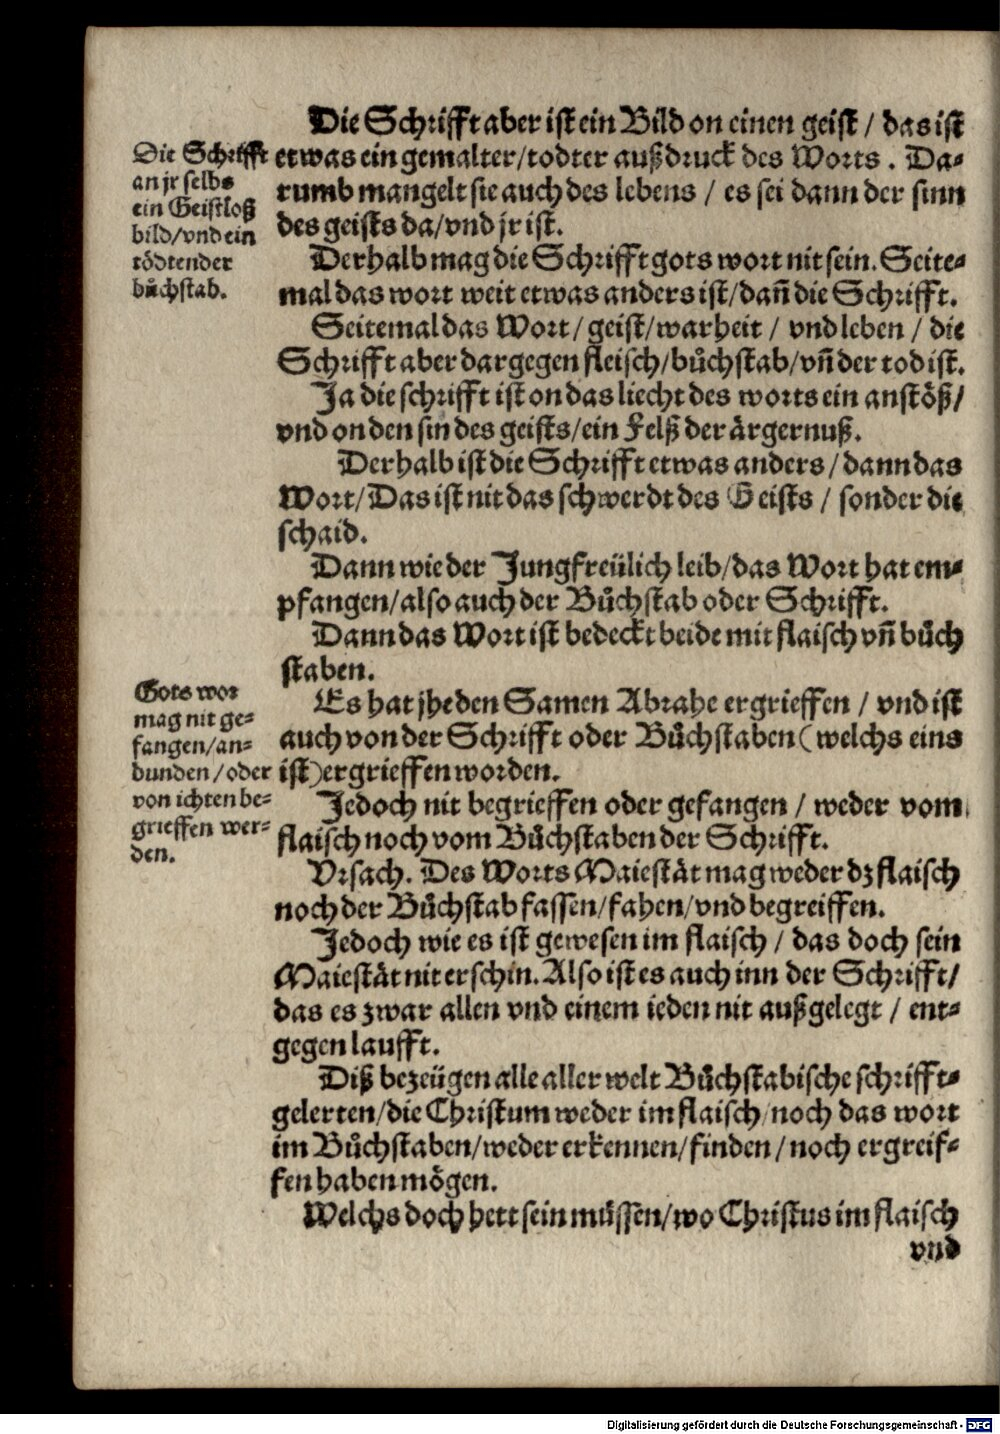 Die Schrifft aber ist ein Bild on einen geist / das ist
etwas ein gemalter/todter außdruck des Worts . Da-
rumb mangelt sie auch des lebens / es sei dann der sinn
des geists da/vnd jr ist.
Die Schrifft
an jr selbs
ein Geistloß
bild/vnd ein
tödtender
bůchstab.
Derhalb mag die Schrifft gots wort nit sein. Seite-
mal das wort weit etwas anders ist/dañ die Schrifft.
Seitemal das Wort/geist/warheit / vnd leben / die
Schrifft aber dargegen fleisch/bůchstab/vñ der tod ist.
Ja die schrifft ist on das liecht des worts ein anstöß/
vnd on den sin des geists/ein Felß der ärgernuß.
Derhalb ist die Schrifft etwas anders/dann das
Wort/Das ist nit das schwerdt des Geists / sonder die
schaid.
Dann wie der Jungfreülich leib/das Wort hat em-
pfangen/also auch der Bůchstab oder Schrifft.
Dann das Wort ist bedeckt beide mit flaisch vñ bůch
staben.
Es hat jhe den Samen Abrahe ergrieffen / vnd ist
auch von der Schrifft oder Bůchstaben (welchs eins
ist)ergrieffen worden.
Gots wor
mag nit ge-
fangen/an-
bunden/oder
von ichten be-
grieffen wer-
den.
Jedoch nit begrieffen oder gefangen / weder vom
flaisch noch vom Bůchstaben der Schrifft.
Vrsach. Des Worts Maiestät mag weder dz flaisch
noch der Bůchstab fassen/fahen/vnd begreiffen.
Jedoch wie es ist gewesen im flaisch / das doch sein
Maiestät nit erschin. Also ist es auch inn der Schrifft/
das es zwar allen vnd einem ieden nit außgelegt / ent-
gegen laufft.
Diß bezeügen alle aller welt Bůchstabische schrifft-
gelerten/die Christum weder im flaisch/noch das wort
im Bůchstaben/weder erkennen/finden/noch ergreif-
fen haben mögen.
Welchs doch hett sein müssen/wo Christus im flaisch
vnd
Digitalisierung gefördert durch die Deutsche Forschungsgemeinschaft - DFG